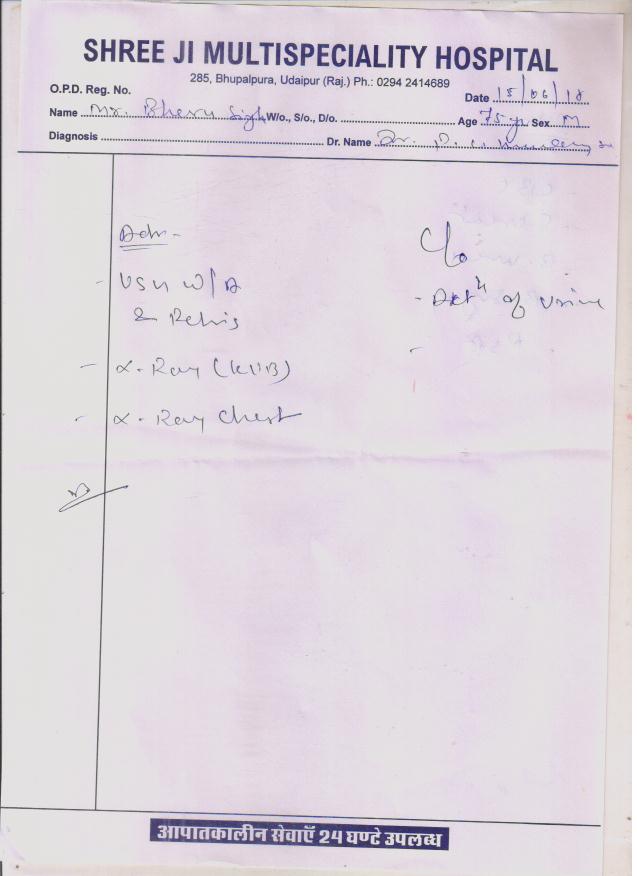 SHREE JI MULTISPECIALITY HOSPITAL
285, Bhupalpura, Udaipur (Raj.) Ph.: 0294 2414689
O.P.D. Reg. No.
Date 15/06/18
Name Mr. Bheru Sigh W/o., S/o., D/o. Age 75 yr Sex M
Diagnosis Dr. Name Dr. D.
Adv -
C/o
- USG W/A
& Pelvis
- of Urine
- X-Ray (KUB)
-
- X-Ray Chest
आपातकालीन सेवाएँ 24 घण्टे उपलब्ध